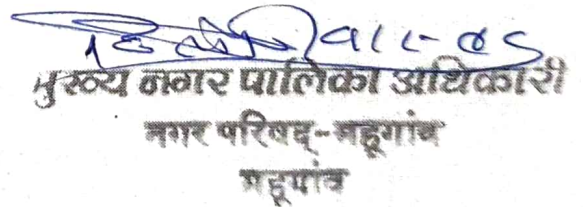 मुख्य नगर पालिका अधिकारी
नगर परिषद्-महूगांव
महूगांव